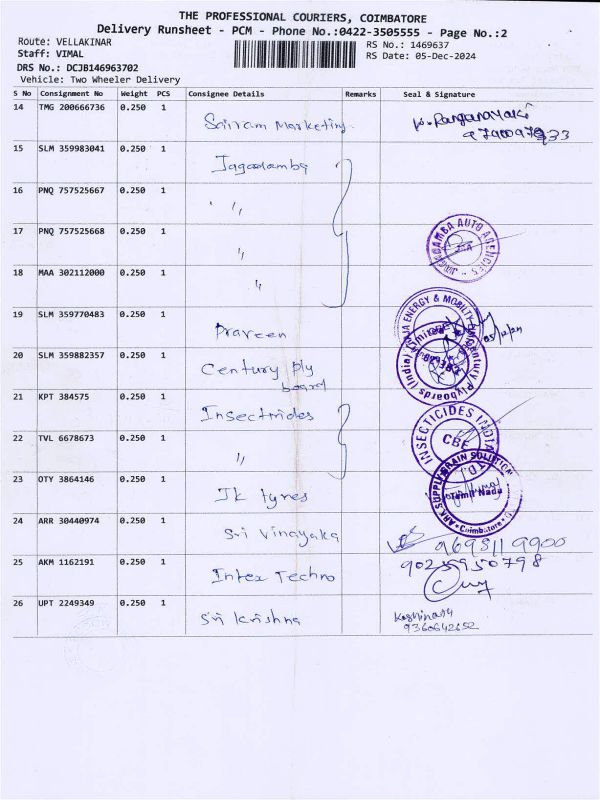 THE PROFESSIONAL COURIERS, COIMBATORE
Delivery Runsheet - PCM - Phone No.:0422-3505555 - Page No.:2
Route: VELLAKINAR
Staff: VIMAL
RS No.: 1469637
RS Date: 05-Dec-2024
DRS No.: DCJB146963702
Vehicle: Two Wheeler Delivery
S No Consignment No Weight PCS Consignee Details Remarks Seal & Signature
14 TMG 200666736 0.250 1 Sairam Marketing
15 SLM 359983041 0.250 1 Jagadamba
16 PNQ 757525667 0.250 1 "
17 PNQ 757525668 0.250 1 "
JAGADAMBA AUTO AGENCIES
18 MAA 302112000 0.250 1 "
19 SLM 359770483 0.250 1 Praveen
ENERGY & MOBILITY
05/12/24
20 SLM 359882357 0.250 1 Century Ply board
Century Plyboards (India) Limited
21 KPT 384575 0.250 1 Insectrides
INSECTICIDES INDIA LTD.
CBE
22 TVL 6678673 0.250 1 "
23 OTY 3864146 0.250 1 Jk tyres
ARK SUPPLY BRAIN SOLUTION
Tamil Nadu
Coimbatore
24 ARR 30440974 0.250 1 Sri Vinayaka
25 AKM 1162191 0.250 1 Intex Techno 9025950798
26 UPT 2249349 0.250 1 Sri Krishna
9360642652